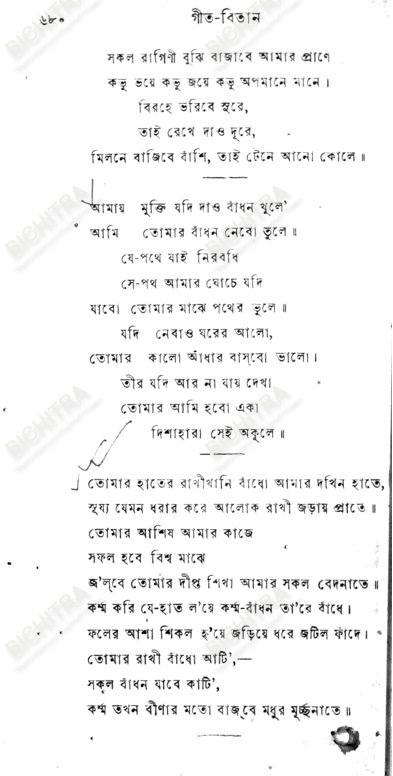 ৬৮০ গীত-বিতান
সকল রাগিণী বুঝি বাজাবে আমার প্রাণে
কভু ভয়ে কভু জয়ে কভু অপমানে মানে।
বিরহে ভরিবে সুরে,
তাই রেখে দাও দূরে,
মিলনে বাজিবে বাঁশি, তাই টেনে আনো কোলে॥
আমায় মুক্তি যদি দাও বাঁধন খুলে'
আমি তোমার বাঁধন নেবো তুলে॥
যে-পথে যাই নিরবধি
সে-পথ আমার ঘোচে যদি
যাবো তোমার মাঝে পথের ভুলে॥
যদি নেবাও ঘরের আলো,
তোমার কালো আঁধার বাস্‌বো ভালো।
তীর যদি আর না যায় দেখা
তোমার আমি হবো একা
দিশাহারা সেই অকূলে॥
তোমার হাতের রাখীখানি বাঁধো আমার দখিন হাতে,
সূর্য্য যেমন ধরার করে আলোক রাখী জড়ায় প্রাতে॥
তোমার আশিষ আমার কাজে
সফল হবে বিশ্ব মাঝে
জ'ল্‌বে তোমার দীপ্ত শিখা আমার সকল বেদনাতে॥
কর্ম্ম করি যে-হাত ল'য়ে কর্ম্ম-বাঁধন তা'রে বাঁধে।
ফলের আশা শিকল হ'য়ে জড়িয়ে ধরে জটিল ফাঁদে।
তোমার রাখী বাঁধো আটি',—
সকল বাঁধন যাবে কাটি',
কর্ম্ম তখন বীণার মতো বাজ্‌বে মধুর মূর্চ্ছনাতে॥
BICHITRA